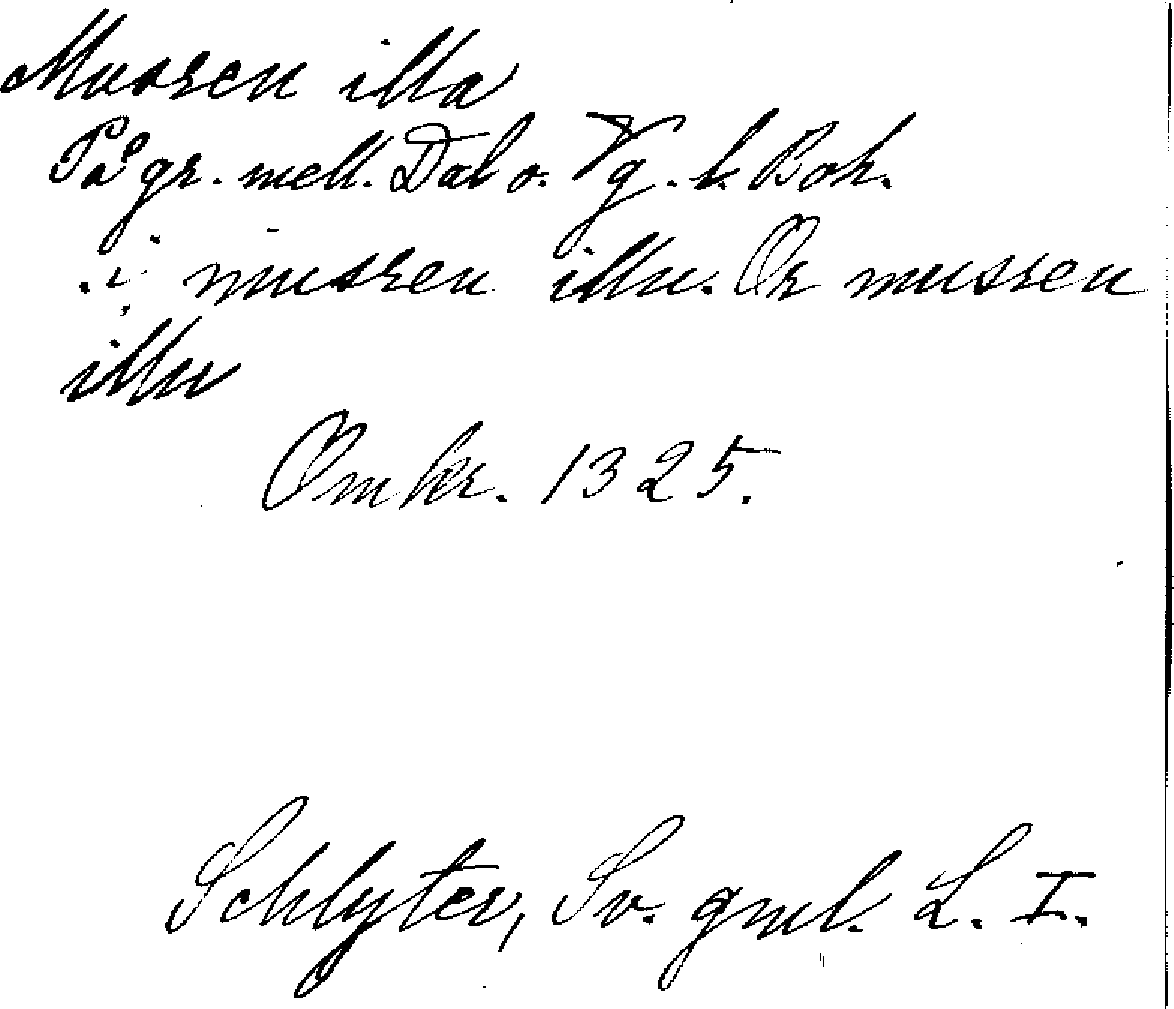 Mosren illa
På gr. mell. Dal o. Vg. k. Boh.
i mosren illu. Or mosren
illu
Omkr. 1325.
Schlyter, Sv. gml. L. I.